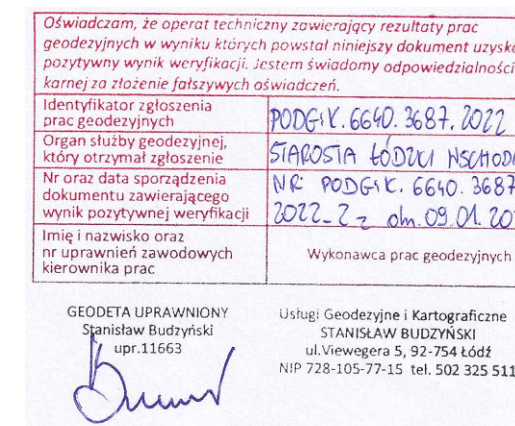 Oświadczam, że operat techniczny zawierający rezultaty prac
geodezyjnych w wyniku których powstał niniejszy dokument uzysk
pozytywny wynik weryfikacji. Jestem świadomy odpowiedzialności
karnej za złożenie fałszywych oświadczeń.
Identyfikator zgłoszenia
prac geodezyjnych
PODGiK. 6640. 3687. 2022
Organ służby geodezyjnej,
który otrzymał zgłoszenie
STAROSTA ŁÓDZKI WSCHODN
Nr oraz data sporządzenia
dokumentu zawierającego
wynik pozytywnej weryfikacji
NR PODGiK. 6640. 3687
2022_2 z dn. 09.01. 20
Imię i nazwisko oraz
nr uprawnień zawodowych
kierownika prac
Wykonawca prac geodezyjnych
GEODETA UPRAWNIONY
Stanisław Budzyński
upr.11663
Usługi Geodezyjne i Kartograficzne
STANISŁAW BUDZYŃSKI
ul.Viewegera 5, 92-754 Łódź
NIP 728-105-77-15 tel. 502 325 511